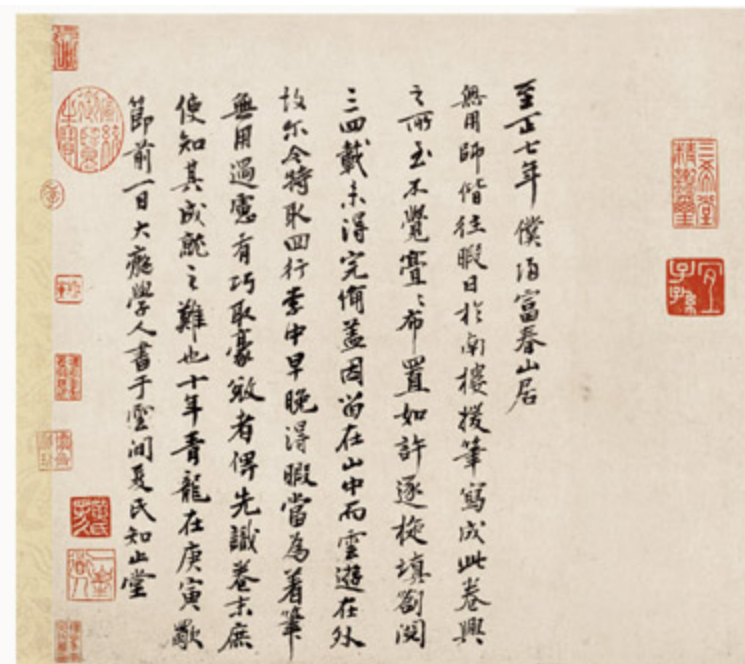 至正七年僕歸富春山居
無用師偕往暇日於南樓援筆寫成此卷興
之所至不覺亹〻布置如許逐旋填劄閱
三四載未得完備蓋因留在山中而雲遊在外
故尔今特取回行李中早晚得暇當為着筆
無用過慮有巧取豪敓者俾先識卷末庶
使知其成就之難也十年青龍在庚寅歜
節前一日大癡學人書于雲間夏氏知止堂
三希堂精鑑璽
宜子孫